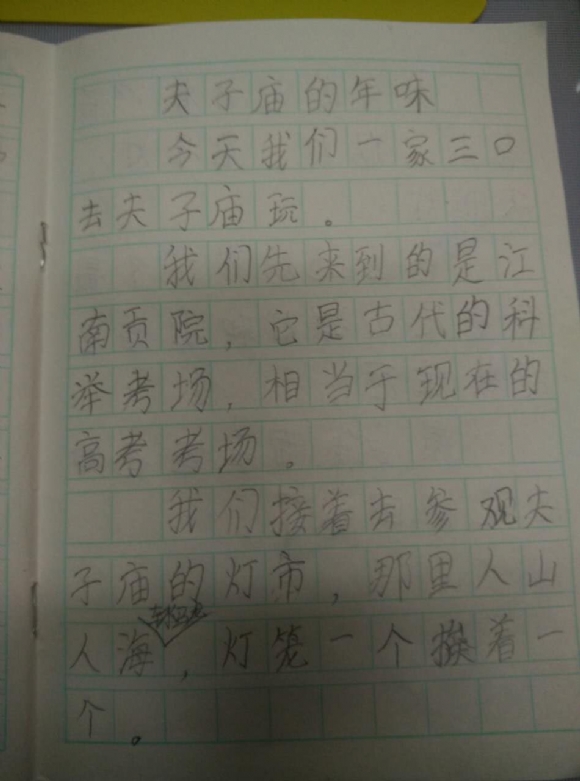 夫子庙的年味
今天我们一家三口
去夫子庙玩。
我们先来到的是江
南贡院，它是古代的科
举考场，相当于现在的
高考考场。
我们接着去参观夫
子庙的灯市，那里人山
人海，灯笼一个挨着一
个。